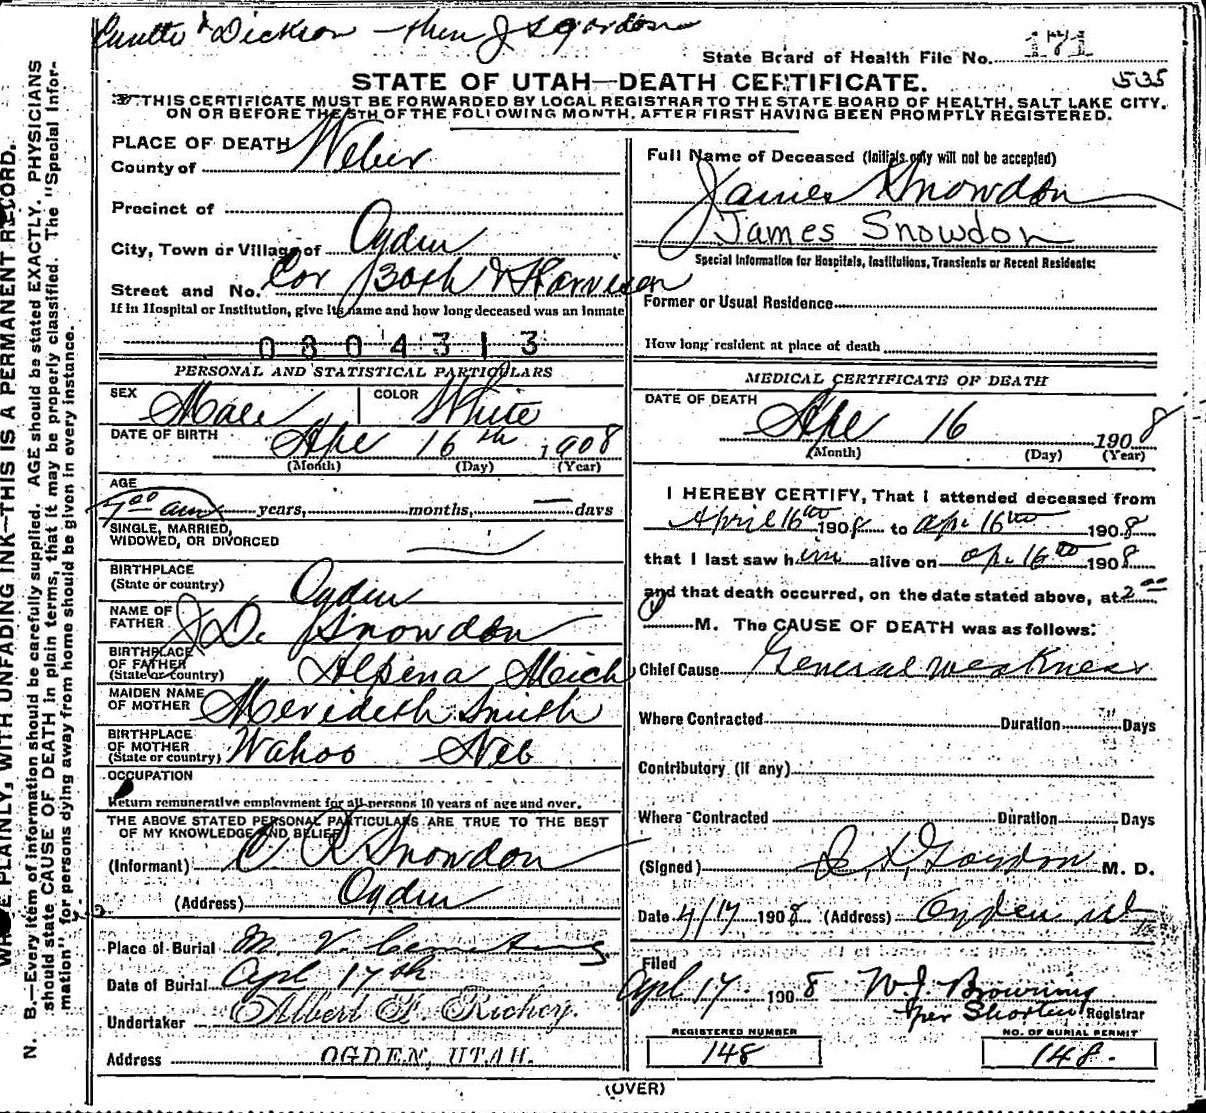 Dickson then J S Gordon
State Board of Health File No. 181
STATE OF UTAH—DEATH CERTIFICATE. 535
THIS CERTIFICATE MUST BE FORWARDED BY LOCAL REGISTRAR TO THE STATE BOARD OF HEALTH, SALT LAKE CITY,
ON OR BEFORE THE 5TH OF THE FOLLOWING MONTH, AFTER FIRST HAVING BEEN PROMPTLY REGISTERED.
PLACE OF DEATH
County of Weber
Precinct of
City, Town or Village of Ogden
Street and No. Cor & Harrison
If in Hospital or Institution, give its name and how long deceased was an inmate
0804313
PERSONAL AND STATISTICAL PARTICULARS
SEX Male COLOR White
DATE OF BIRTH Apr 16th 1908
(Month) (Day) (Year)
AGE
7 00 am years, months, — days
SINGLE, MARRIED,
WIDOWED, OR DIVORCED
BIRTHPLACE
(State or country) Ogden
NAME OF
FATHER J D. Snowdon
BIRTHPLACE
OF FATHER
(State or country) Alpena Mich
MAIDEN NAME
OF MOTHER Merideth Smith
BIRTHPLACE
OF MOTHER
(State or country) Wahoo Neb
OCCUPATION
Return remunerative employment for all persons 10 years of age and over.
THE ABOVE STATED PERSONAL PARTICULARS ARE TRUE TO THE BEST
OF MY KNOWLEDGE AND BELIEF
(Informant) C R Snowdon
(Address) Ogden
Place of Burial M. V. Cemetery
Date of Burial Apl 17th
Undertaker Albert F. Richey.
Address OGDEN, UTAH.
Full Name of Deceased (Initials only will not be accepted)
James Snowdon
James Snowdon
Special Information for Hospitals, Institutions, Transients or Recent Residents:
Former or Usual Residence
How long resident at place of death
MEDICAL CERTIFICATE OF DEATH
DATE OF DEATH
Apr 16 1908
(Month) (Day) (Year)
I HEREBY CERTIFY, That I attended deceased from
April 16th 1908 to Ap. 16th 1908
that I last saw him alive on Ap. 16th 1908
and that death occurred, on the date stated above, at 2 00
P M. The CAUSE OF DEATH was as follows:
Chief Cause General weakness
Where Contracted Duration Days
Contributory (if any)
Where Contracted Duration Days
(Signed) J. S. Gordon M. D.
Date 4/17 1908 (Address) Ogden Ut
Filed
Apl 17 1908 W J Browning
per Shorten Registrar
REGISTERED NUMBER
148
NO. OF BURIAL PERMIT
148.
(OVER)
PLAINLY, WITH UNFADING INK—THIS IS A PERMANENT RECORD.
N. B.—Every item of information should be carefully supplied. AGE should be stated EXACTLY. PHYSICIANS
should state CAUSE OF DEATH in plain terms, that it may be properly classified. The "Special Infor-
mation" for persons dying away from home should be given in every instance.